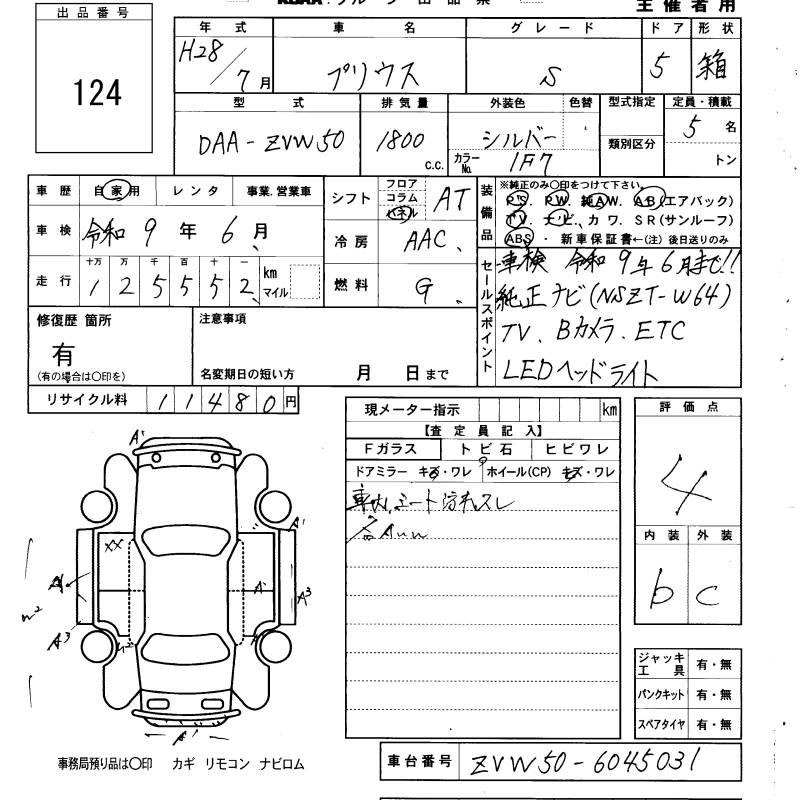 主催者用
出品番号
124
年式 車名 グレード ドア 形状
H28/7月 プリウス S 5 箱
型式 排気量 外装色 色替 型式指定 定員・積載
DAA-ZVW50 1800 c.c. シルバー 類別区分 5名
カラーNo. 1F7 トン
車歴 自家用 レンタ 事業.営業車
車検 令和9年6月
走行 十万 万 千 百 十 一
125552 km マイル
シフト フロア コラム パネル AT
冷房 AAC
燃料 G
装備品
※純正のみ〇印をつけて下さい。
PS. PW. 純AW. AB(エアバック)
TV. ナビ. カワ. SR(サンルーフ)
ABS・新車保証書←(注)後日送りのみ
セールスポイント
車検 令和9年6月まで!!
純正ナビ(NSZT-W64)
TV、Bカメラ.ETC
LEDヘッドライト
修復歴 箇所
有
(有の場合は〇印を)
注意事項
名変期日の短い方 月 日まで
リサイクル料 11480円
現メーター指示 km
【査定員記入】
Fガラス トビ石 ヒビワレ
ドアミラー キズ・ワレ ホイール(CP) キズ・ワレ
車内.シート汚れスレ
評価点
4
内装 外装
b c
A'
A'
XX
A'
A3
A3
A'
ジャッキ工具 有・無
パンクキット 有・無
スペアタイヤ 有・無
事務局預り品は〇印 カギ リモコン ナビロム
車台番号 ZVW50-6045031